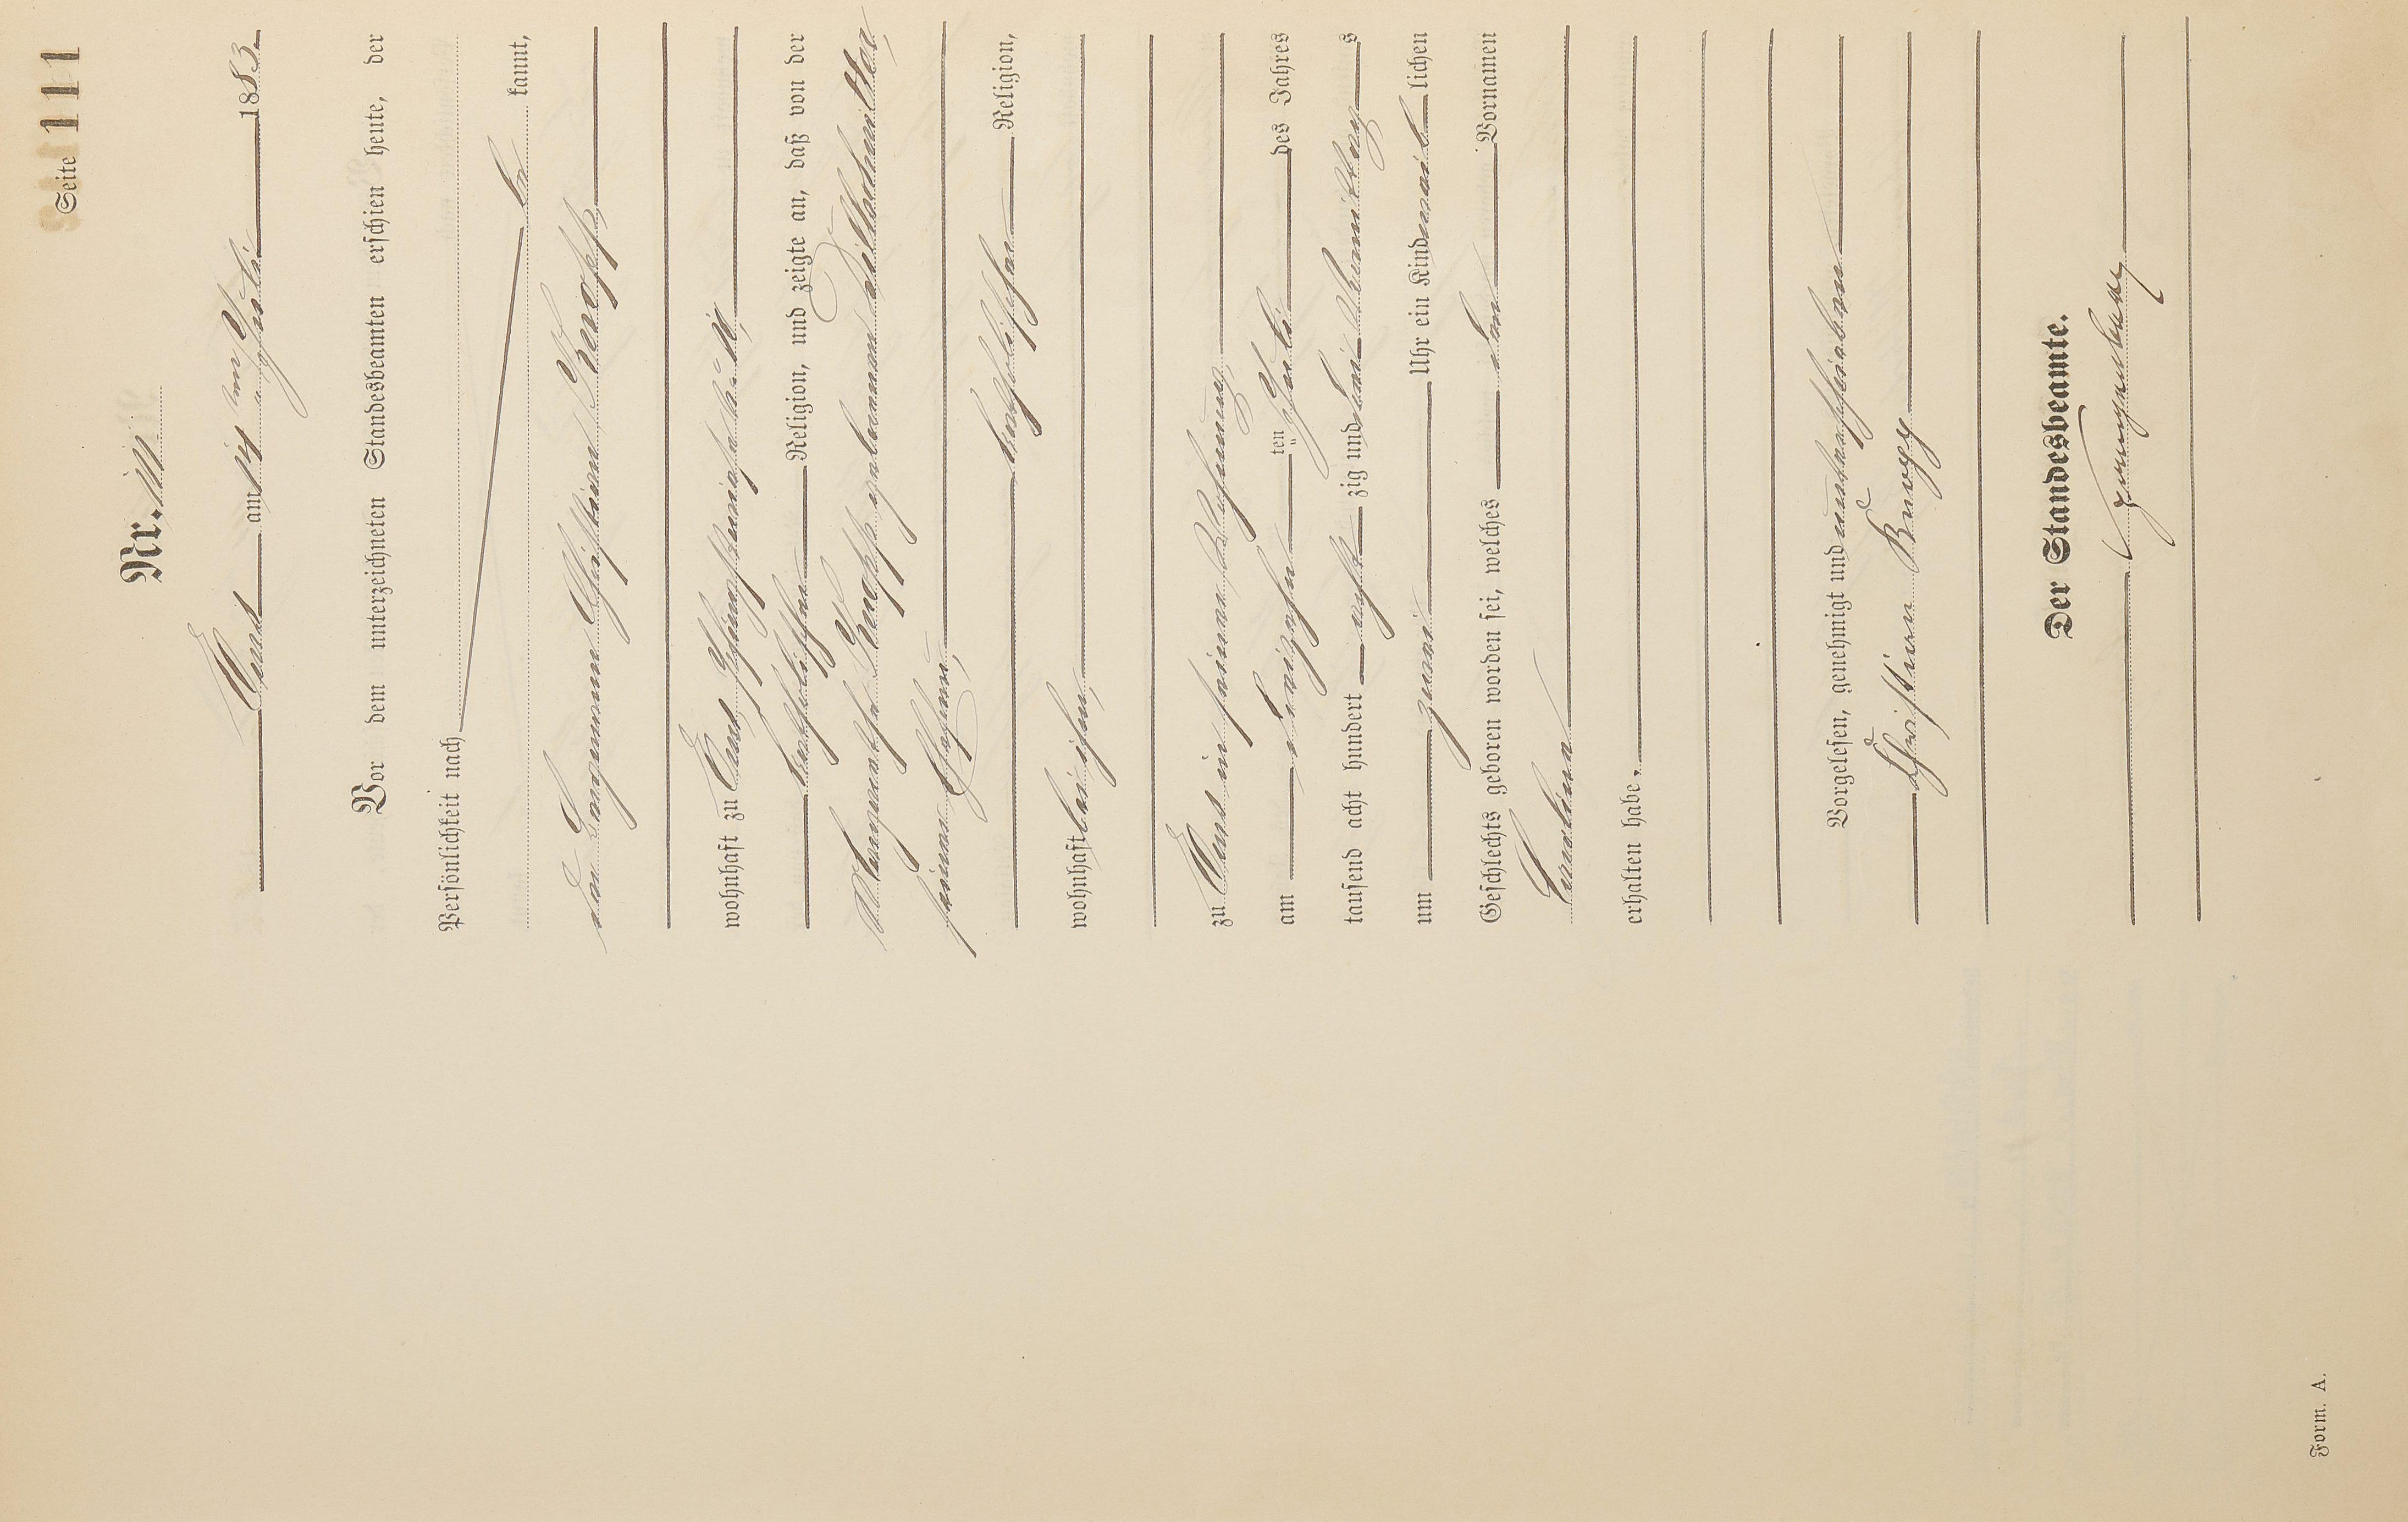 Seite 111
Nr. 111.
Ems am 14 ten Juli 1883.
Vor dem unterzeichneten Standesbeamten erschien heute, der
Persönlichkeit nach
be kannt,
der Bergmann Christian Knopp,
wohnhaft zu Ems
katholischer Religion, und zeigte an, daß von der
Margarethe Knopp geborenen
seiner Ehefrau,
katholischer Religion,
wohnhaft bei ihm,
zu Ems in seiner Wohnung,
am dreizehn ten Juli des Jahres
tausend acht hundert acht zig und drei Vormittags
um zwei Uhr ein Kind weib lichen
Geschlechts geboren worden sei, welches den Vornamen
Carolina
erhalten habe.
Vorgelesen, genehmigt und unterschrieben
Christian
Der Standesbeamte.
Form. A.